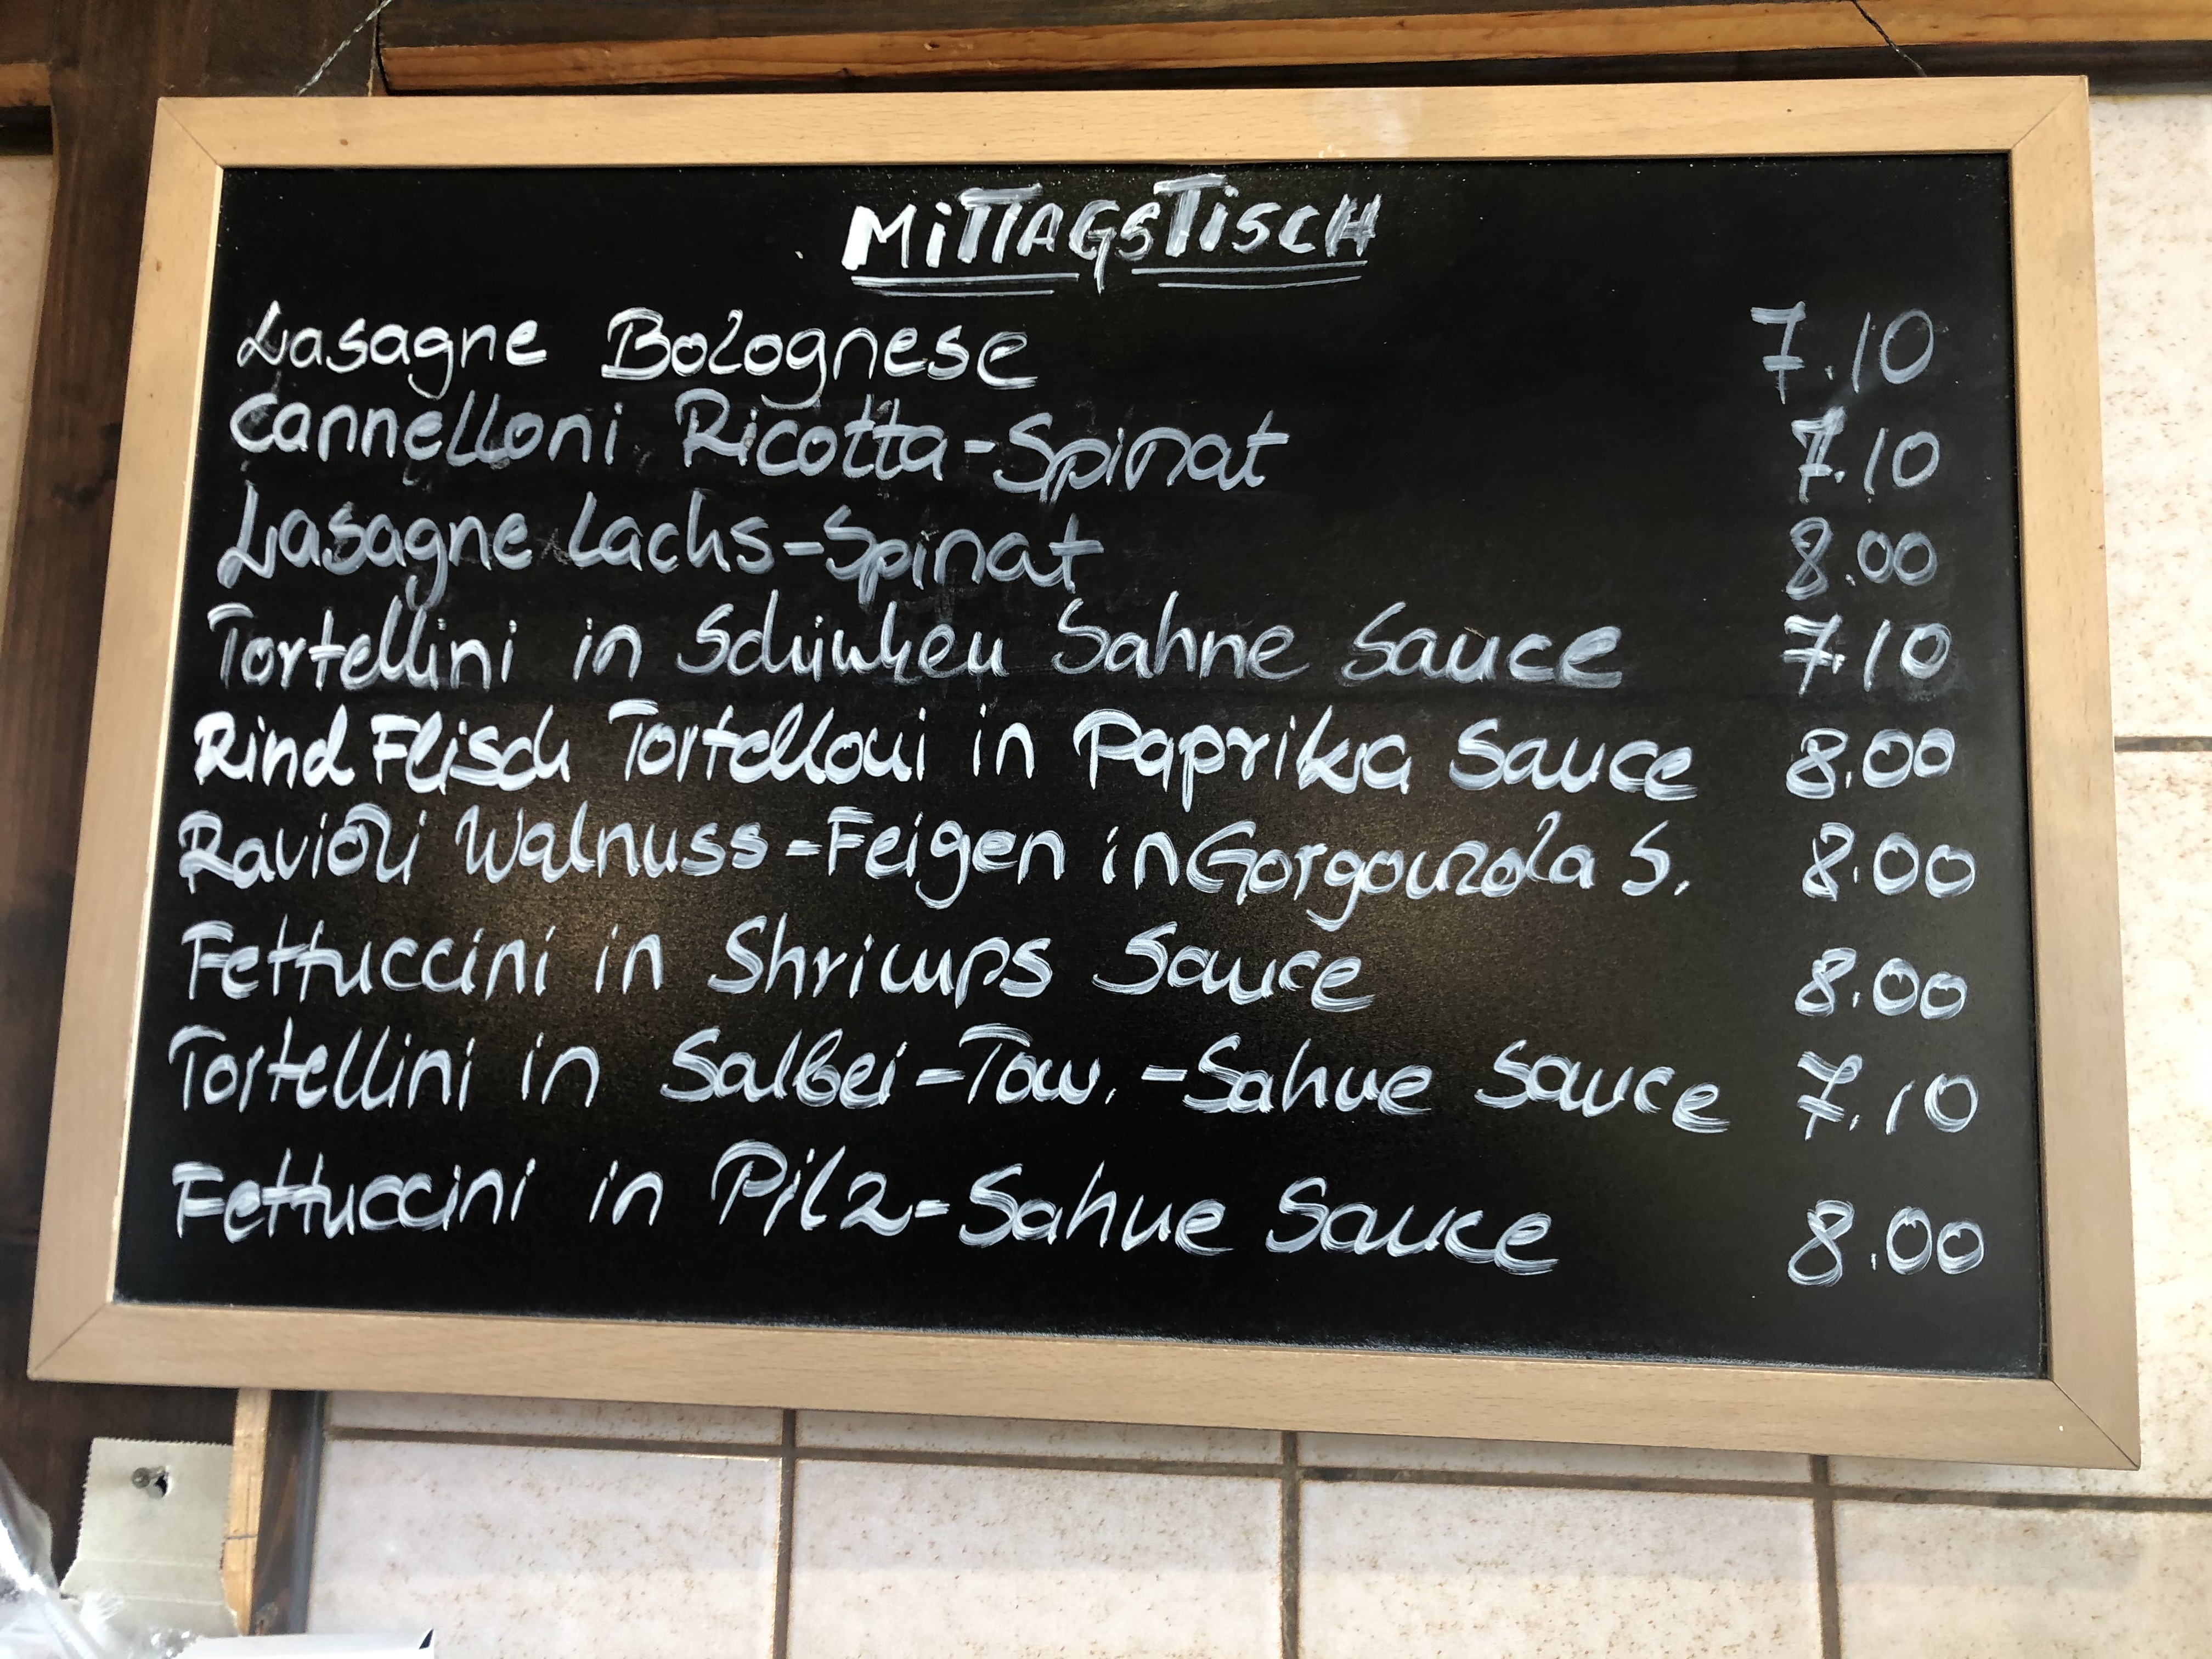 MiTTAGSTiSCH
Lasagne Bolognese 7.10
Cannelloni Ricotta-Spinat 7.10
Lasagne Lachs-Spinat 8.00
Tortellini in Schinken Sahne Sauce 7.10
Rind Flisch Tortelloni in Paprika Sauce 8.00
Ravioli Walnuss-Feigen in Gorgonzola S. 8.00
Fettuccini in Shrimps Sauce 8.00
Tortellini in Salbei-Tom.-Sahne Sauce 7.10
Fettuccini in Pilz-Sahne Sauce 8.00